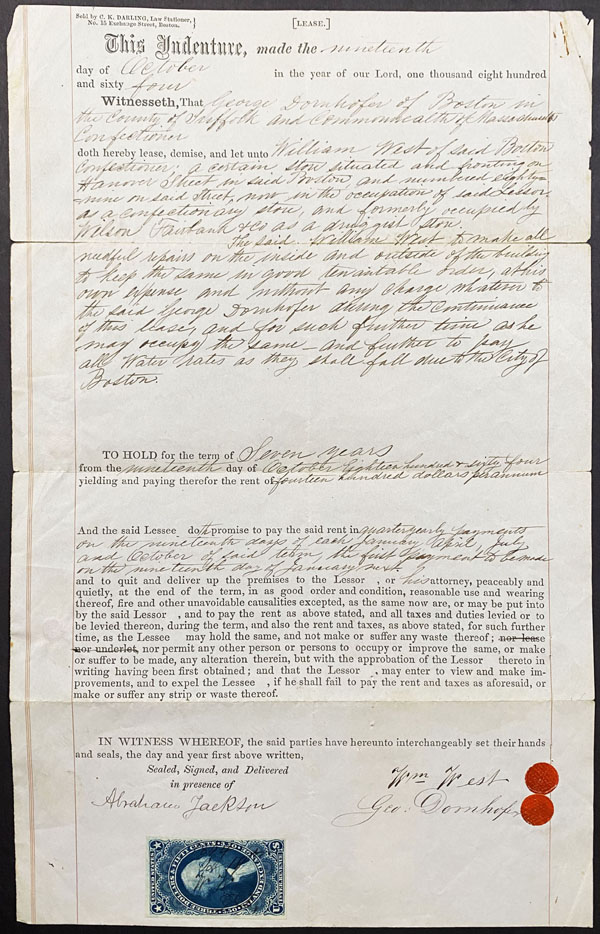 Sold by C. K. DARLING, Law Stationer,
No. 15 Exchange Street, Boston.
[LEASE.]
This Indenture, made the nineteenth
day of October in the year of our Lord, one thousand eight hundred
and sixty four
Witnesseth, That George Dornhofer of Boston in
the County of Suffolk and Commonwealth of Massachusetts
Confectioner
doth hereby lease, demise, and let unto William West of said Boston
Confectioner; a certain store situated and fronting on
Hanover Street in said Boston, and numbered eighty=
=nine on said Street, now in the occupation of said Lessor
as a confectionary store, and formerly occupied by
Wilson Fairbank & Co as a druggist store.
The said William West to make all
needful repairs on the inside and outside of the building
to keep the same in good tenantable order, at his
own expense and without any charge whatever to
the said George Dornhofer during the continuance
of this lease, and for such further time as he
may occupy the same - and further to pay
all Water rates as they shall fall due to the City of
Boston.
TO HOLD for the term of Seven years
from the nineteenth day of October Eighteen hundred & sixty four
yielding and paying therefor the rent of fourteen hundred dollars per annum
And the said Lessee doth promise to pay the said rent in quarter yearly payments
on the nineteenth days of each January, April, July,
and October of said term, the first payment to be made
on the nineteenth day of January next.
and to quit and deliver up the premises to the Lessor , or his attorney, peaceably and
quietly, at the end of the term, in as good order and condition, reasonable use and wearing
thereof, fire and other unavoidable causalities excepted, as the same now are, or may be put into
by the said Lessor , and to pay the rent as above stated, and all taxes and duties levied or to
be levied thereon, during the term, and also the rent and taxes, as above stated, for such further
time, as the Lessee may hold the same, and not make or suffer any waste thereof; nor lease
nor underlet, nor permit any other person or persons to occupy or improve the same, or make
or suffer to be made, any alteration therein, but with the approbation of the Lessor thereto in
writing having been first obtained; and that the Lessor , may enter to view and make im-
provements, and to expel the Lessee , if he shall fail to pay the rent and taxes as aforesaid, or
make or suffer any strip or waste thereof.
IN WITNESS WHEREOF, the said parties have hereunto interchangeably set their hands
and seals, the day and year first above written,
Sealed, Signed, and Delivered
in presence of
Wm West
Abraham Jackson
Geo: Dornhofer